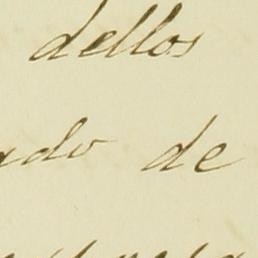 dellos
ado de